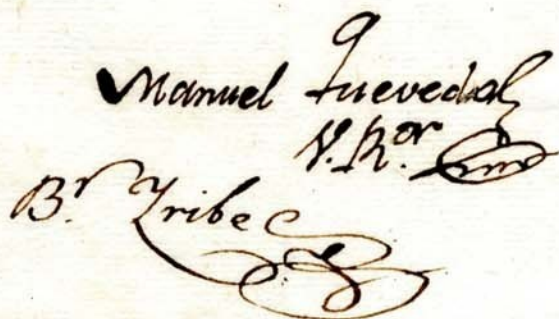 Manuel Quevedo
V. R.or
B.r Yribe